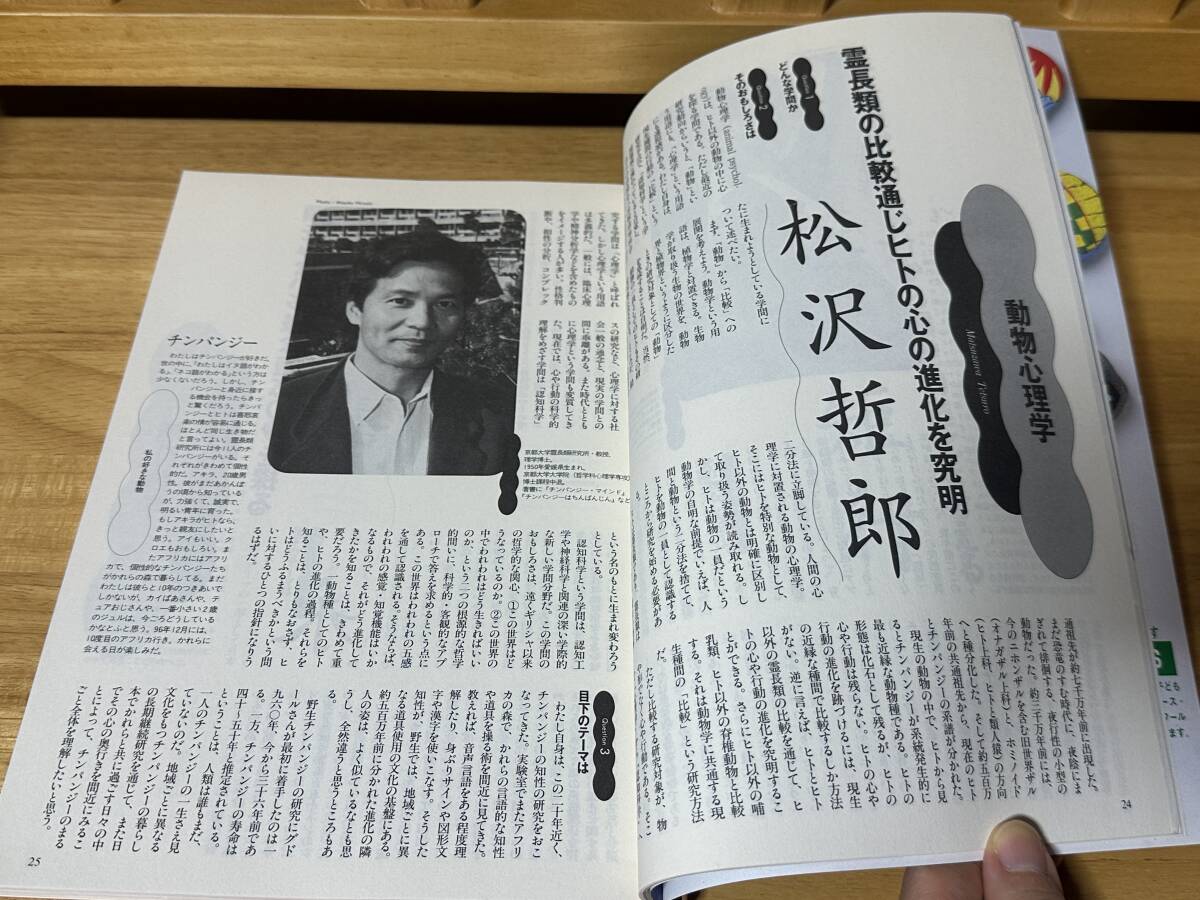 動物心理学
Matsuzawa Tetsuro
霊長類の比較通じヒトの心の進化を究明
松沢哲郎
Question 1
どんな学問か
Question 2
そのおもしろさは
動物心理学(animal psychol-
たに生まれようとしている学問に
ついて述べたい。
まず、「動物」から「比較」への
展開を考えよう。動物学という用
語は、植物学と対置できる。生物
学が取り扱う生物の世界を、動物
界と植物界というように区分した
二分法に立脚している。人間の心
理学に対置される動物の心理学。
そこにはヒトを特別な動物として、
ヒト以外の動物とは明確に区別し
て取り扱う姿勢が読み取れる。し
かし、ヒトは動物の一員だという
動物学の自明な前提でいえば、人
間と動物という二分法を捨てて、
ヒトを動物の一員として認識する
ところから研究を始める必要があ
通祖先が約七千万年前に出現した。
まだ恐竜のすむ時代に、夜陰にま
ぎれて徘徊する、夜行性の小型の
動物だった。約三千万年前には、
今のニホンザルを含む旧世界ザル
(オナガザル上科)と、ホミノイド
(ヒト上科、ヒトと類人猿)の方向
へと種分化した。そして約五百万
年前の共通祖先から、現在のヒト
とチンパンジーの系譜が分かれた。
現生の動物の中で、ヒトから見
るとチンパンジーが系統発生的に
最も近縁な動物種である。ヒトの
形態は化石として残るが、ヒトの
心や行動は残らない。ヒトの心や
行動の進化を跡づけるには、現生
の近縁な種間で比較するしか方法
がない。逆に言えば、ヒトとヒト
以外の霊長類の比較を通して、ヒ
トの心や行動の進化を究明するこ
とができる。さらにヒト以外の哺
乳類、ヒト以外の脊椎動物と比較
する。それは動物学に共通する現
生種間の「比較」という研究方法
だ。
ただし比較する研究対象が、物
24
Photo : Hitoshi
究する学問は「心理学」と呼ばれ
てきた。しかし心理学という用語
は多義的だ。一般には、臨床心理
学や精神分析学などを含めたもの
をイメージする人が多い。性格判
断や、相性の分析、コンプレック
スの研究など、心理学に対する社
会一般の通念と、現実の学問との
間に乖離がある。また時代ととも
に心理学という学問も変質してき
た。現在では、心や行動の科学的
理解をめざす学問は「認知科学」
京都大学霊長類研究所・教授。
理学博士。
1950年愛媛県生まれ。
京都大学大学院(哲学科心理学専攻)
博士課程中退。
著書に『チンパンジー・マインド』
『チンパンジーはちんぱんじん』など
という名のもとに生まれ変わろう
としている。
認知科学という学問は、認知工
学や神経科学と関連の深い学際的
な新しい学問分野だ。この学問の
おもしろさは、遠くギリシャ以来
の哲学的な関心、①この世界はど
うなっているのか。②この世界の
中でわれわれはどう生きればいい
のか、という二つの根源的な哲学
的問いに、科学的・客観的なアプ
ローチで答えを求めるという点に
ある。この世界はわれわれの五感
を通して認識される。そうならば、
われわれの感覚・知覚機能はいか
なるもので、それがどう進化して
きたかを知ることは、きわめて重
要だろう。一動物種としてのヒト
や、ヒトの進化の過程。それらを
知ることは、とりもなおさず、ヒ
トはどうふるまうべきかという問
いに対するひとつの指針になりう
るはずだ。
Question 3
目下のテーマは
わたし自身は、この二十年近く、
チンパンジーの知性の研究をおこ
なってきた。実験室でまたアフリ
カの森で、かれらの言語的な知性
や道具を操る術を間近に見てきた。
教えれば、音声言語をある程度理
解したり、身ぶりサインや図形文
字や漢字を使いこなす。そうした
知性が、野生では、地域ごとに異
なる道具使用の文化の基盤にある。
約五百万年前に分かれた進化の隣
人の姿は、よく似ているなとも思
うし、全然違うと思うところもあ
る。
野生チンパンジーの研究にグド
ールさんが最初に着手したのは一
九六〇年、今から三十六年前であ
る。一方、チンパンジーの寿命は
四十―五十年と推定されている。
ということは、人類は誰もまだ、
一人のチンパンジーの一生さえ見
ていないのだ。地域ごとに異なる
文化をもつチンパンジーの暮らし
の長期継続研究を通じて、また日
本でかれらと共に過ごす日々の中
でその心の奥行きを間近にみるこ
とによって、チンパンジーのまる
ごと全体を理解したいと思う。
チンパンジー
私の好きな動物
わたしはチンパンジーが好きだ。
世の中に、「わたしはイヌ語がわか
る」、「ネコ語がわかる」という方は
少なくないだろう。しかし、チン
パンジーと身近に接す
る機会を持ったらきっ
と驚くだろう。チンパ
ンジーとヒトは喜怒哀
楽の情が容易に通じる。
ほとんど同じ生き物だ
と言ってよい。霊長類
研究所には今11人のチ
ンパンジーがいる。そ
れぞれがきわめて個性
的だ。アキラ、20歳男
性。彼がまだあかんぼ
うの頃から知っている
が、力強くて、誠実で、
明るい青年に育った。
もしアキラがヒトなら、
きっと親友にしたいと
思う。アイもいい。ク
ロエもおもしろい。ま
たアフリカにはアフリ
カで、個性的なチンパンジーたち
がかれらの森で暮らしてる。まだ
わたしは彼らと10年のつきあいで
しかないが、カイばあさんや、テ
ュアおじさんや、一番小さい2歳
のジュルは、今ごろどうしている
かなとふと思う。96年12月には、
10度目のアフリカ行き。かれらに
会える日が楽しみだ。
25